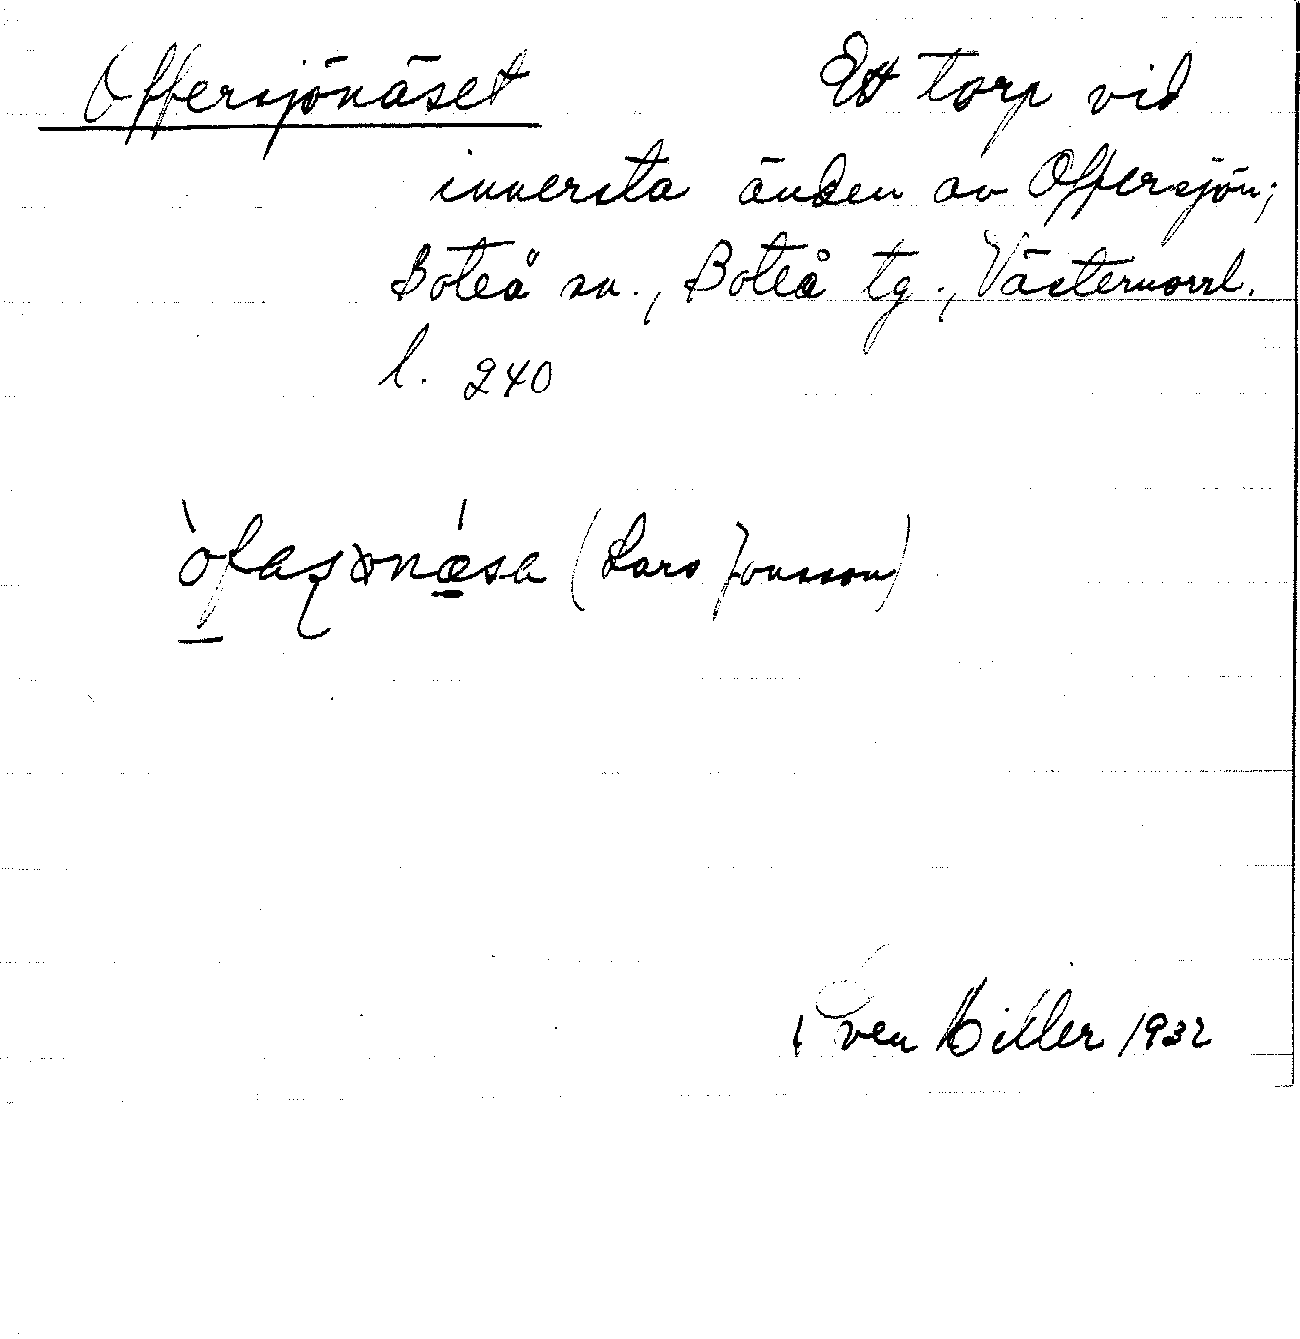 Offersjönäset Ett torp vid
innersta änden av Offersjön;
Boteå sn., Boteå tg., Västernorrl.
l. 240
(Lars Jonsson)
Sven Hiller 1932